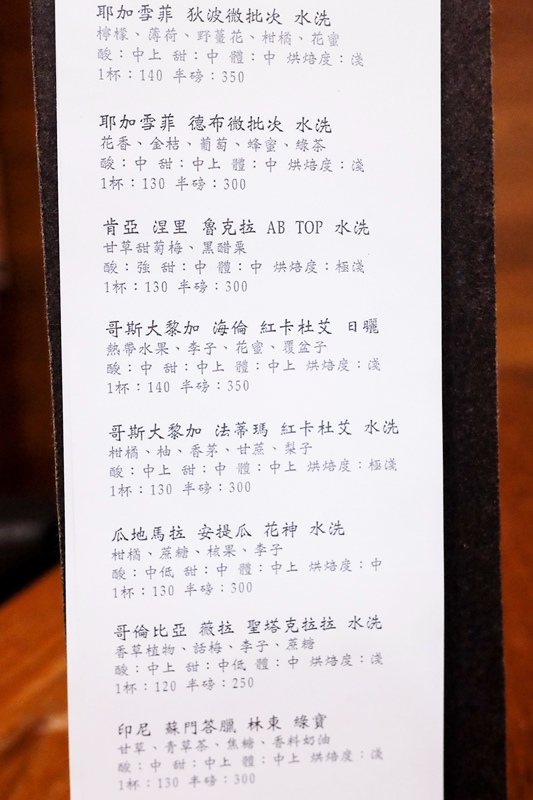 耶加雪菲 狄波微批次 水洗
檸檬、薄荷、野薑花、柑橘、花蜜
酸：中上 甜：中 體：中 烘焙度：淺
1杯：140 半磅：350
耶加雪菲 德布微批次 水洗
花香、金桔、葡萄、蜂蜜、綠茶
酸：中 甜：中上 體：中 烘焙度：淺
1杯：130 半磅：300
肯亞 涅里 魯克拉 AB TOP 水洗
甘草甜菊梅、黑醋栗
酸：強 甜：中 體：中 烘焙度：極淺
1杯：130 半磅：300
哥斯大黎加 海倫 紅卡杜艾 日曬
熱帶水果、李子、花蜜、覆盆子
酸：中 甜：中上 體：中 烘焙度：淺
1杯：140 半磅：350
哥斯大黎加 法蒂瑪 紅卡杜艾 水洗
柑橘、柚、香茅、甘蔗、梨子
酸：中上 甜：中 體：中上 烘焙度：極淺
1杯：130 半磅：300
瓜地馬拉 安提瓜 花神 水洗
柑橘、蔗糖、核果、李子
酸：中低 甜：中 體：中上 烘焙度：中
1杯：130 半磅：300
哥倫比亞 薇拉 聖塔克拉拉 水洗
香草植物、話梅、李子、蔗糖
酸：中上 甜：中低 體：中 烘焙度：淺
1杯：120 半磅：250
印尼 蘇門答臘 林東 綠寶
甘草、青草茶、焦糖、香料奶油
酸：中 甜：中上 體：中上 烘焙度：淺
1杯：130 半磅：300